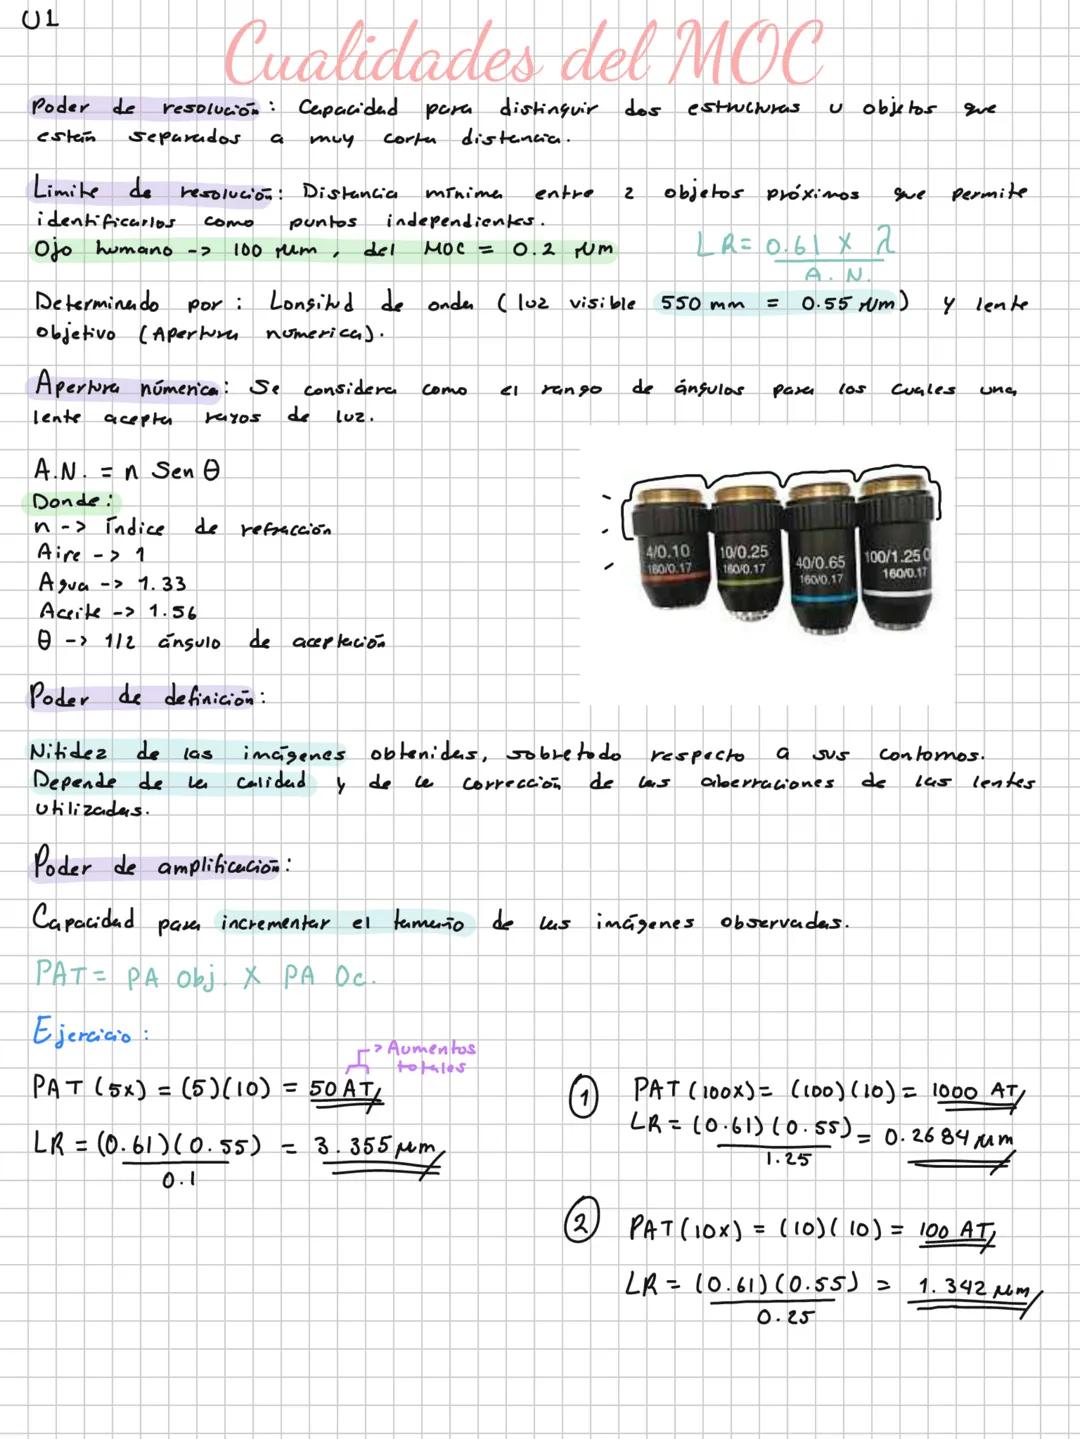 U1
Cualidades del MOC
Poder de resolución: Capacidad para distinguir dos estructuras u objetos que
están separados a muy corta distancia.
Limite de resolución: Distancia mínima entre 2 objetos próximos que permite
identificarlos como puntos independientes.
Ojo humano -> 100 μm, del MOC = 0.2 μm
LR= 0.61 X λ
A.N.
Determinado por: Longitud de onda (luz visible 550 mm = 0.55 μm) y lente
objetivo (Apertura numerica).
Apertura númerica: Se considera como el rango de ángulos para los cuales una
lente acepta rayos de luz.
A.N. = n Sen θ
Donde:
n -> índice de refracción
Aire -> 1
Agua -> 1.33
Aceite -> 1.56
θ -> 1/2 ángulo de aceptación
4/0.10
160/0.17
10/0.25
160/0.17
40/0.65
160/0.17
100/1.25 O
160/0.17
Poder de definición:
Nitidez de las imágenes obtenidas, sobretodo respecto a sus contornos.
Depende de la calidad y de la corrección de las aberraciones de las lentes
utilizadas.
Poder de amplificación:
Capacidad para incrementar el tamaño de las imágenes observadas.
PAT= PA Obj. X PA Oc.
Ejercicio:
-> Aumentos
totales
PAT (5x) = (5)(10) = 50 AT
LR = (0.61)(0.55) = 3.355 μm
0.1
1 PAT (100x)= (100)(10)= 1000 AT
LR= (0.61)(0.55) = 0.2684 μm
1.25
2 PAT(10x) = (10)(10) = 100 AT
LR = (0.61)(0.55) = 1.342 μm
0.25